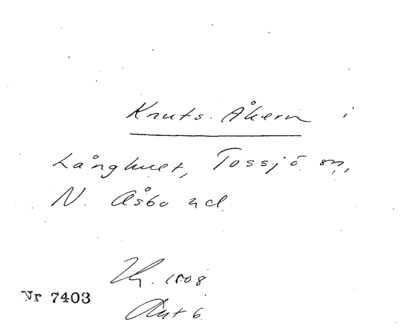 Knuts-Åkern i
Långhult, Tossjö sn,
N. Åsbo hd.
1808
Akt 6.
Nr 7403